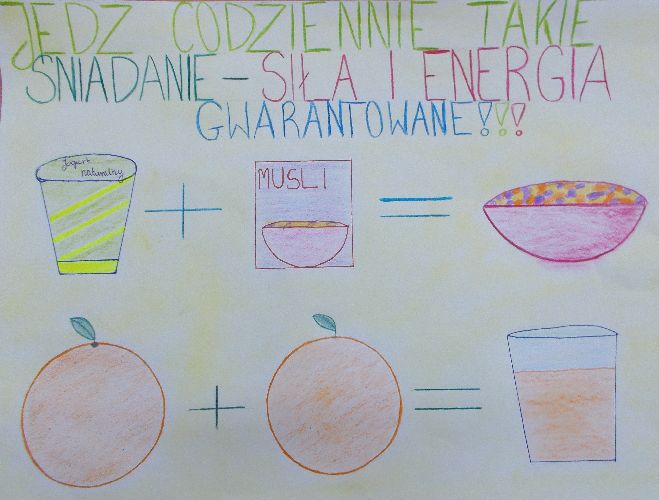 JEDZ CODZIENNIE TAKIE
ŚNIADANIE - SIŁA I ENERGIA
GWARANTOWANE!!!
Jogurt
naturalny
MUSLI